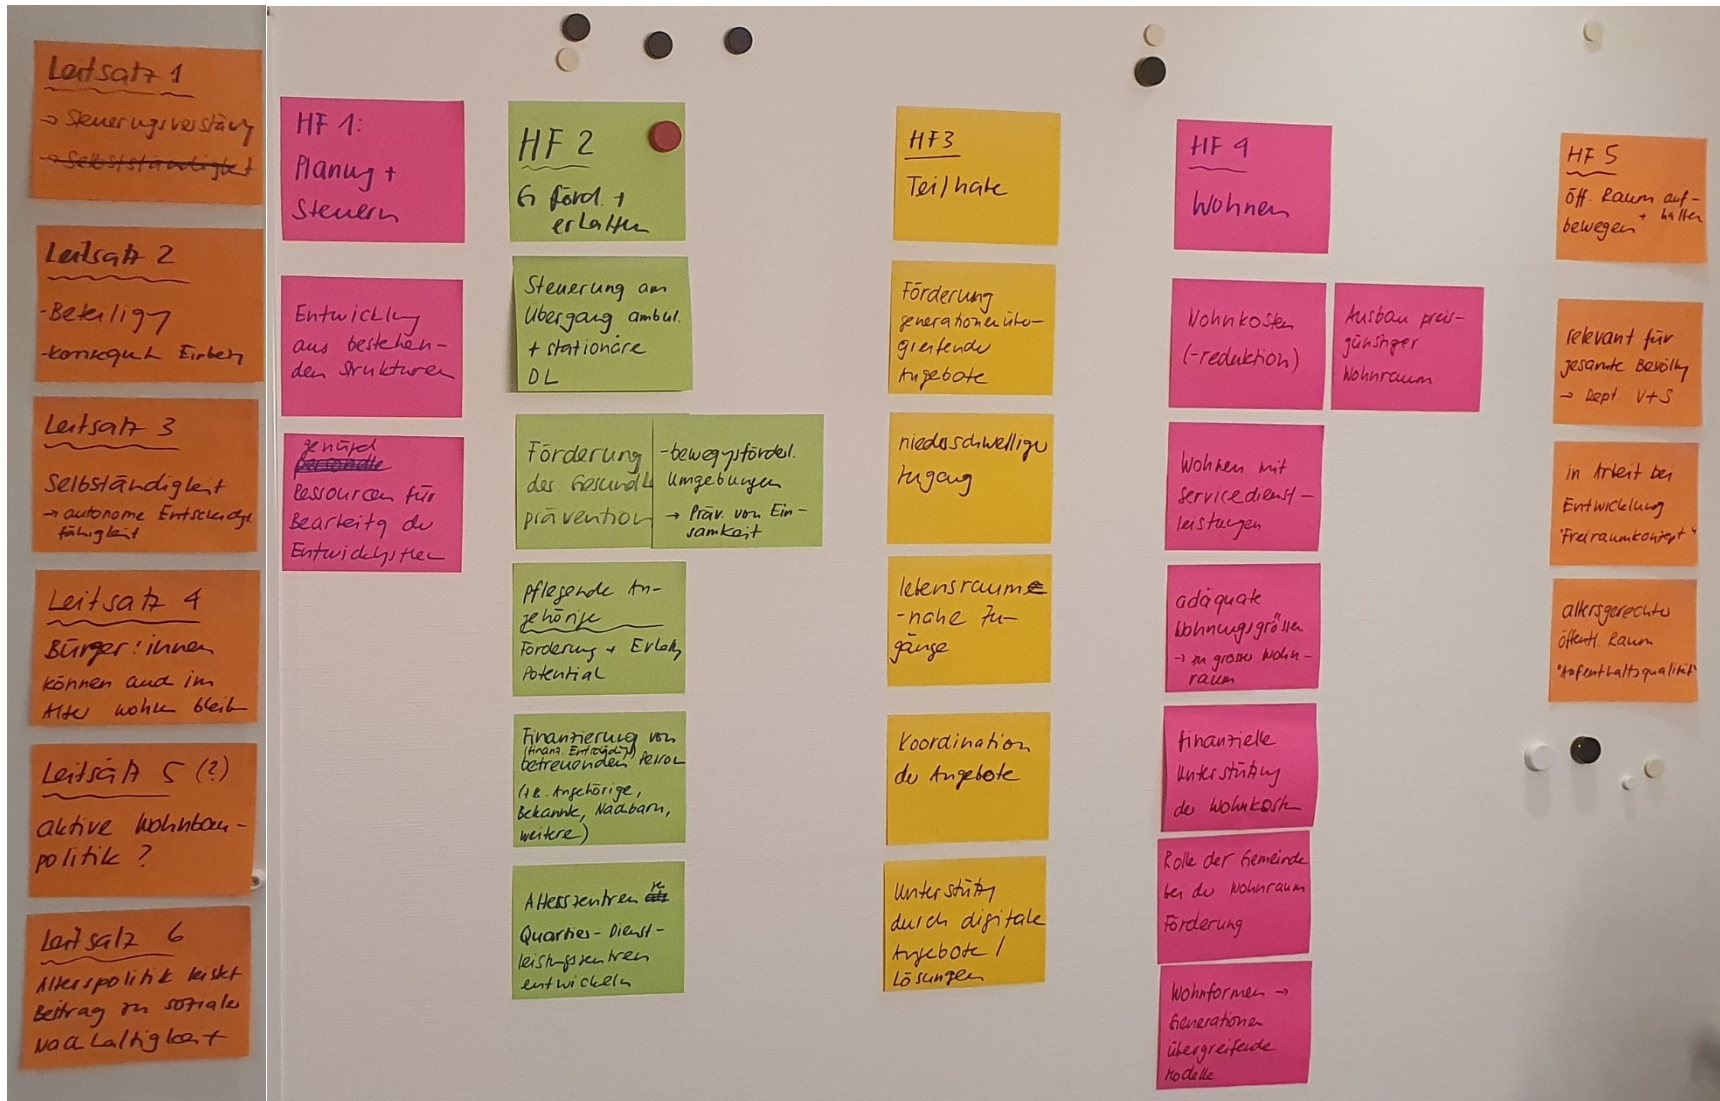 Leitsatz 1
→ Steuerungsverständ
→ Selbstständigkeit
Leitsatz 2
-Beteiligg
-konsequent Einbezu
Leitsatz 3
Selbständigkeit
→ autonome Entscheidgs
fähigkeit
Leitsatz 4
Bürger:innen
können auch im
Alter wohnen bleiben
Leitsatz 5 (?)
aktive Wohnbau-
politik ?
Leitsatz 6
Alterspolitik leistet
Beitrag zu sozialer
Nachhaltigkeit
HF 1:
Planung +
Steuern
Entwicklung
aus bestehen-
den Strukturen
genügd
personelle
Ressourcen für
Bearbeitg der
HF 2
G förd. +
erhalten
Steuerung am
Übergang ambul.
+ stationäre
DL
Förderung
des Gesundh
prävention
-bewegsförderl.
Umgebungen
→ Präv. von Ein-
samkeit
pflegende An-
gehörige
Förderung + Erhaltg
Potential
Finanzierung von
(finanz. Entschädig)
betreuenden Person
(z.B. Angehörige,
Bekannte, Nachbarn,
weitere)
Alterszentren
Quartier-Dienst-
leistungszentren
entwickeln
HF3
Teilhabe
Förderung
generationenüber-
greifender
Angebote
niederschwellige
Zugang
lebensraum
-nahe Zu-
gänge
Koordination
der Angebote
Unterstützg
durch digitale
Angebote /
Lösungen
HF 4
Wohnen
Wohnkosten
(-reduktion)
Ausbau preis-
günstiger
Wohnraum
Wohnen mit
Servicedienst-
leistungen
adäquate
Wohnungsgrössen
→ zu grosser Wohn-
raum
finanzielle
Unterstützung
der Wohnkosten
Rolle der Gemeinde
bei der Wohnraum
Förderung
Wohnformen →
Generationen
übergreifende
Modelle
HF 5
öff. Raum auf-
bewegen + halten
relevant für
gesamte Bevölkg
→ Dept. V+S
in Arbeit bei
Entwicklung
"Freiraumkonzept"
altersgerechter
öffentl. Raum
"Aufenthaltsqualität"